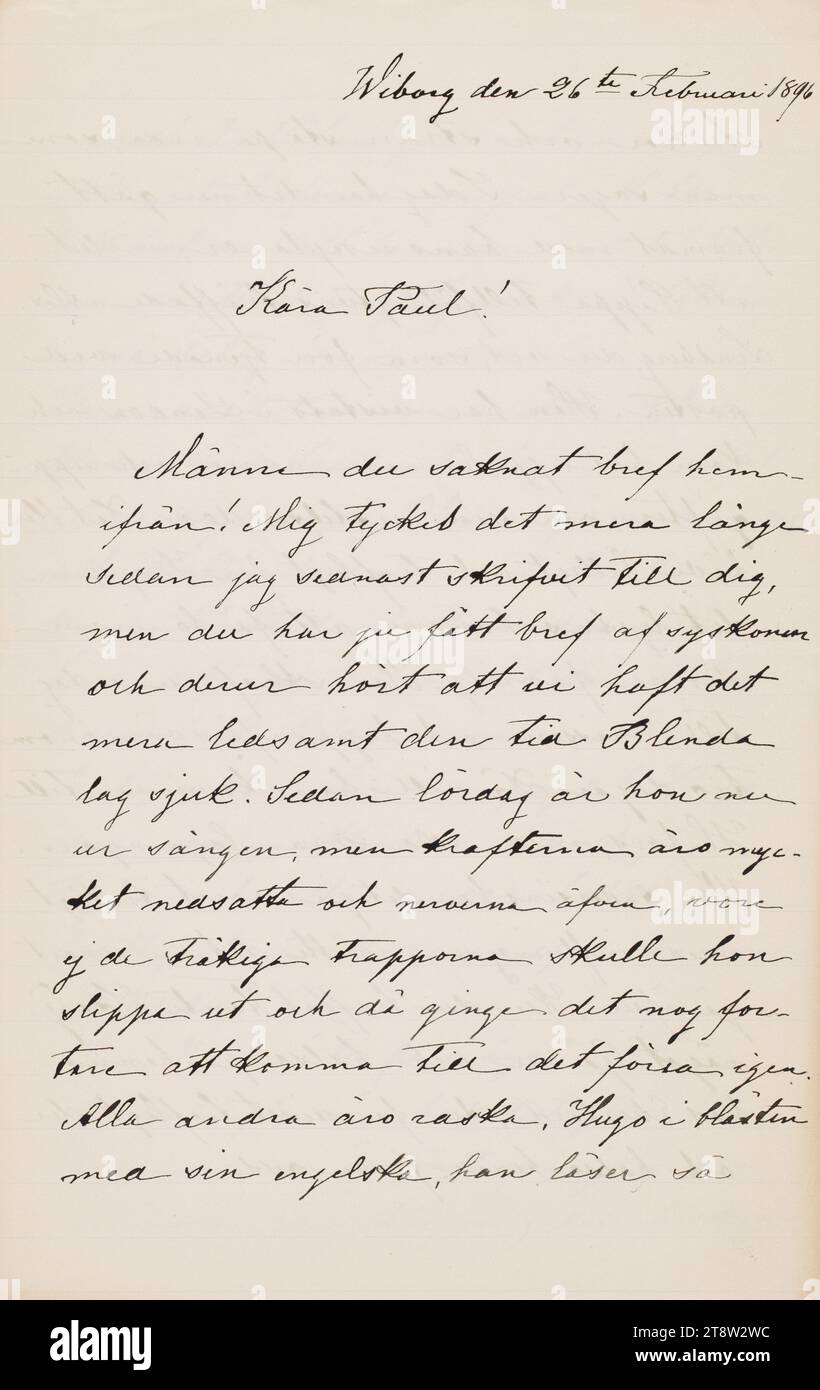 Wiborg den 26te Februari 1896
Kära Paul!
Månne du saknat bref hem-
ifrån! Mig tyckes det mera länge
sedan jag sednast skrifvit till dig,
men du har ju fått bref af syskonen
och derur hört att vi haft det
mera ledsamt den tid Blenda
lag sjuk. Sedan lördag är hon nu
ur sängen, men krafterna äro myc-
ket nedsatta och nerverna äfven, vore
ej de tråkiga trapporna skulle hon
slippa ut och då ginge det nog for-
tare att komma till det förra igen.
Alla andra äro raska, Hugo i blåsten
med sin engelska, han läser så
alamy
alamy
alamy
alamy
alamy
alamy
Image ID: 2T8W2WC
www.alamy.com